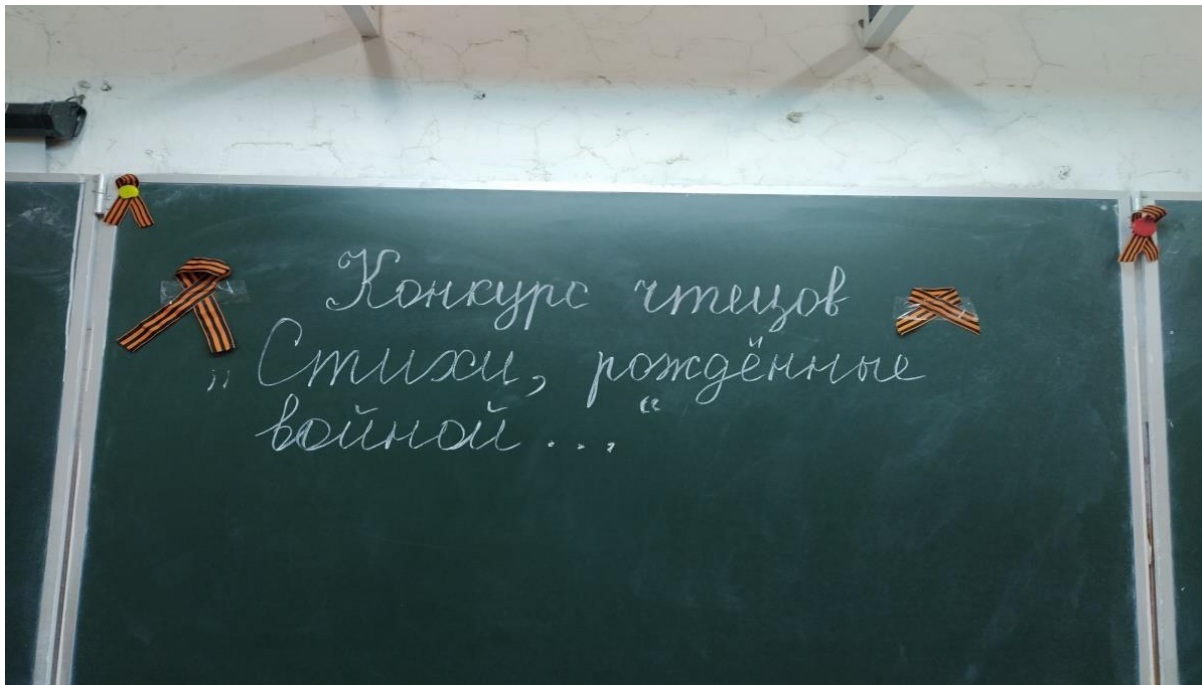 Конкурс чтецов
„Стихи, рождённые
войной..."